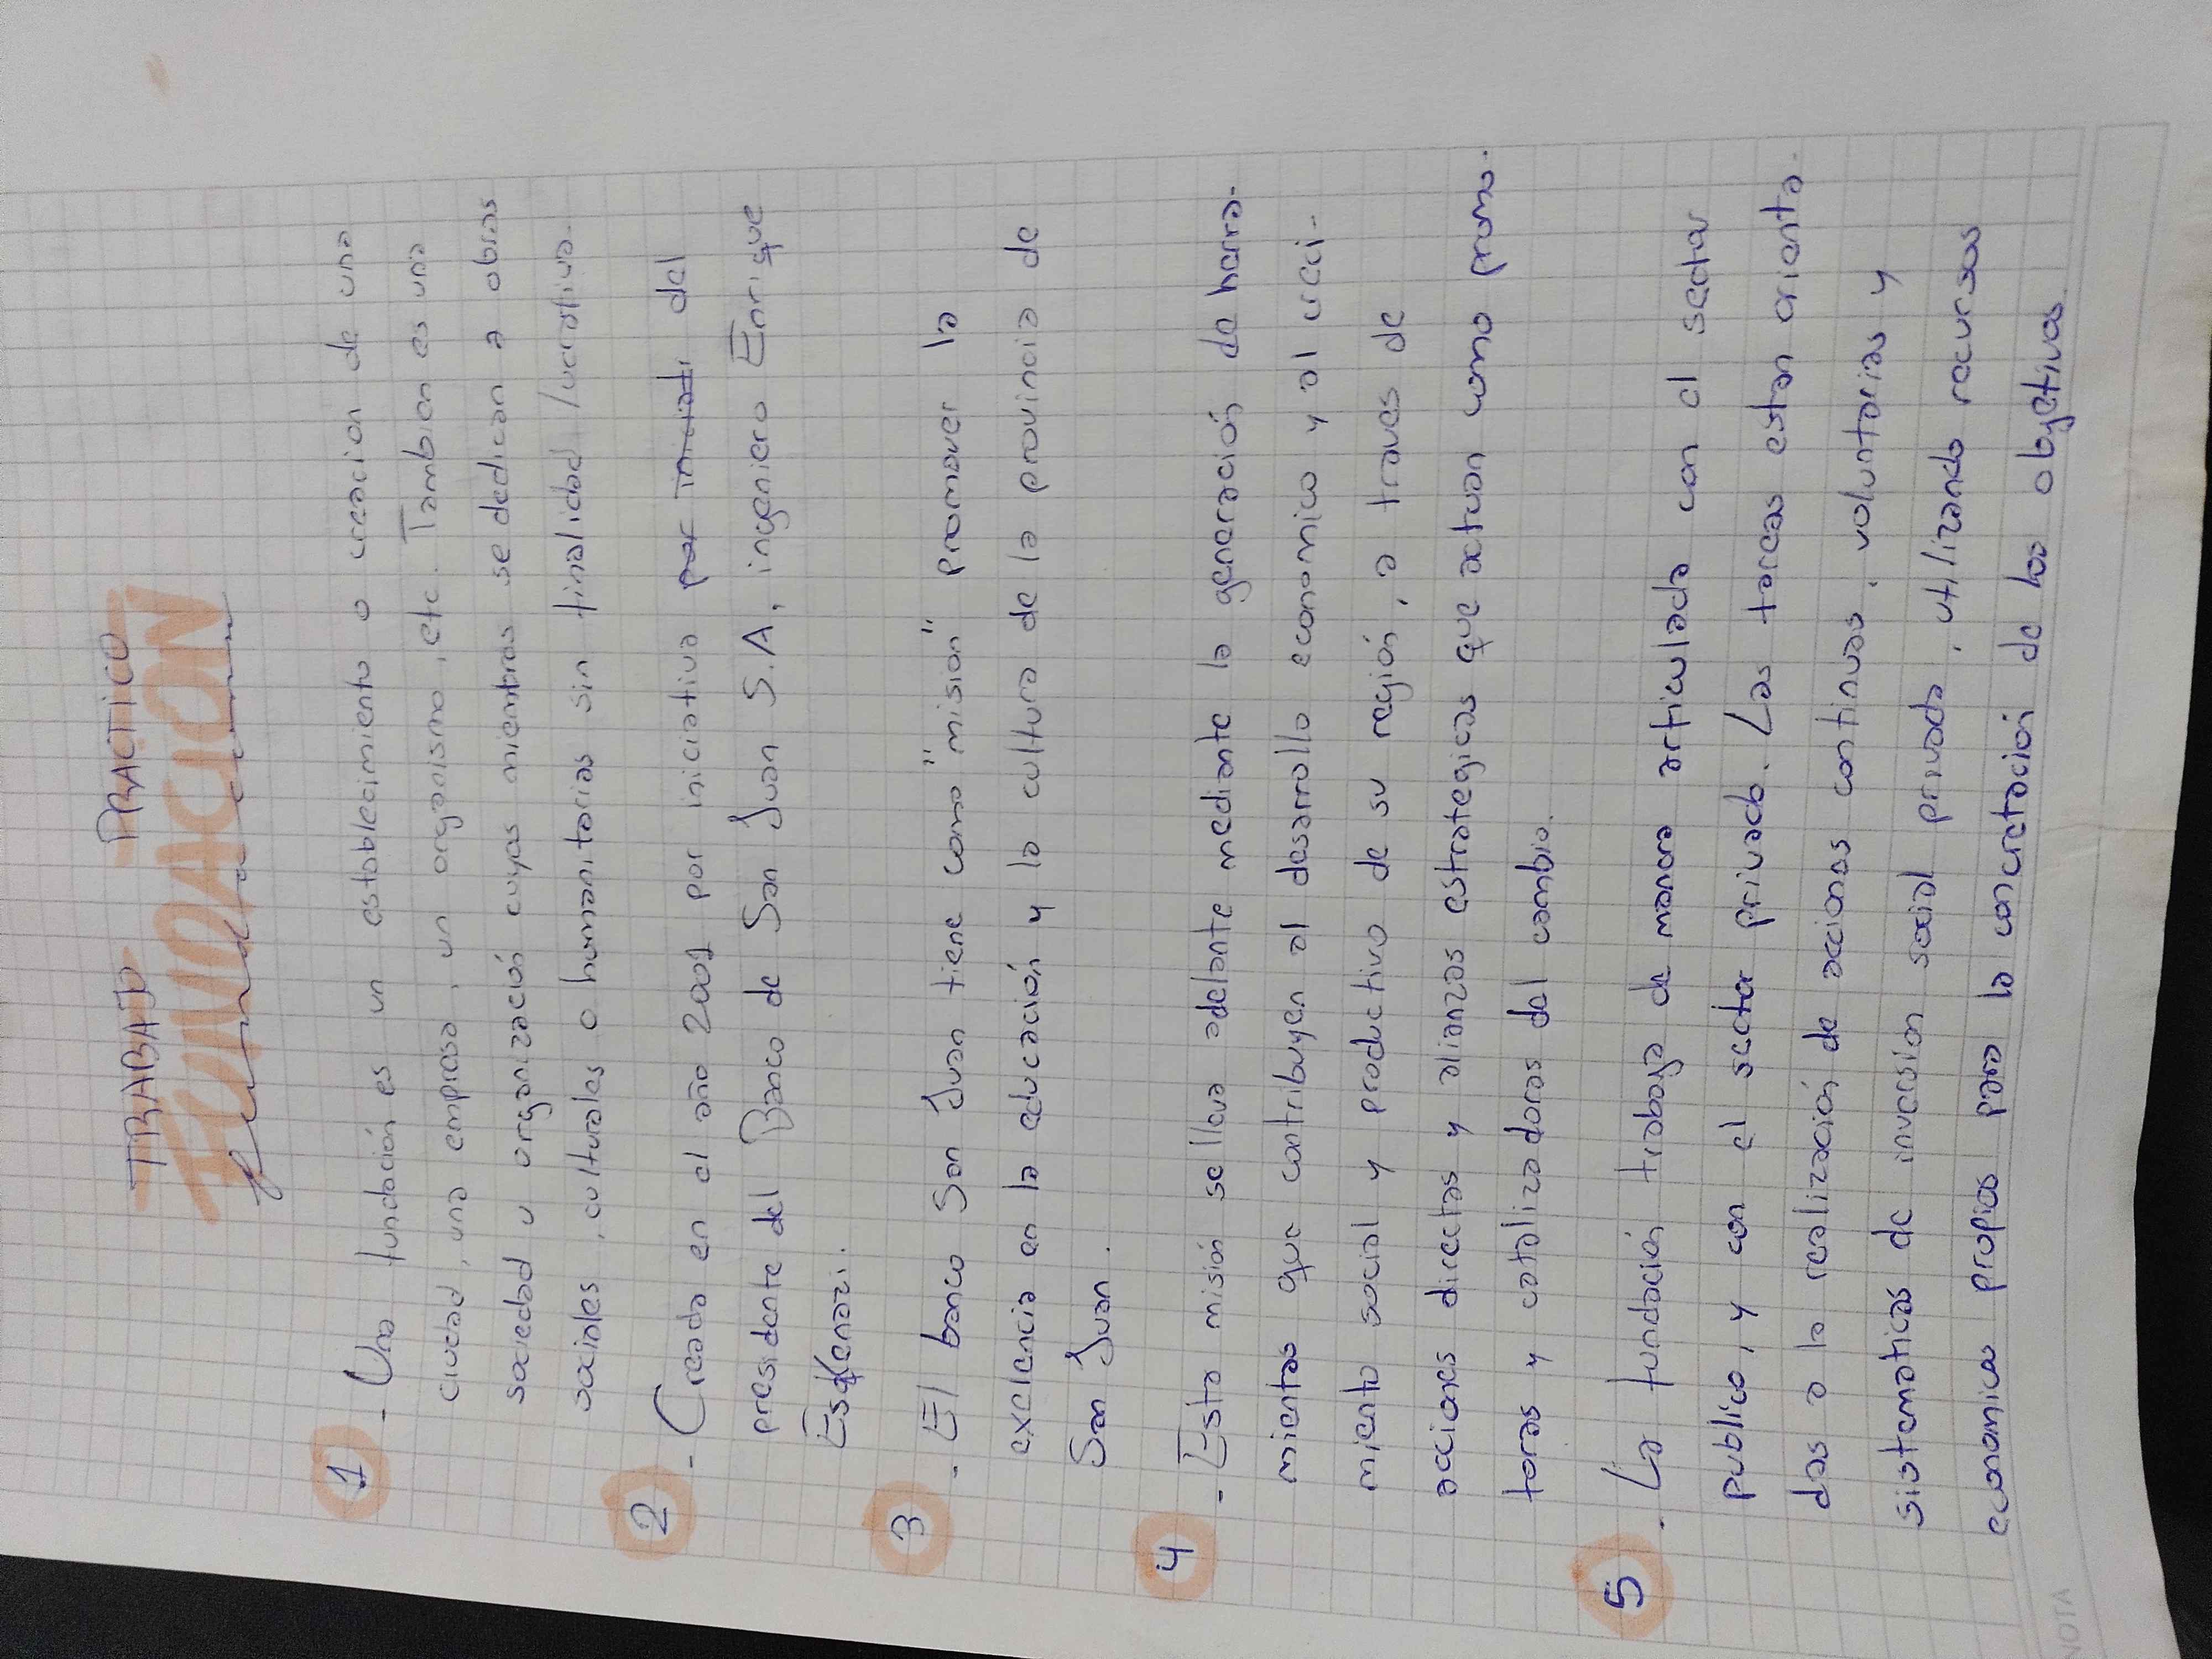 TRABAJO PRACTICO
FUNDACION
fundacion
1 - Una fundación es un establecimiento o creacion de una
ciudad, una empresa, un organismo, etc. Tambien es una
sociedad u organización cuyos miembros se dedican a obras
sociales, culturales o humanitarias sin finalidad lucrativa.
2 - Creada en el año 2001 por iniciativa por iniciati del
presidente del Banco de San Juan S.A, ingeniero Enrique
Eskenazi.
3 - El banco San Juan tiene como "mision" promover la
exelencia en la educación y la cultura de la provincia de
San Juan.
4 - Esta misión se lleva adelante mediante la generación de herra-
mientas que contribuyen al desarrollo economico y al creci-
miento social y productivo de su región, a traves de
acciones directas y alianzas estrategicas que actuan como promo-
toras y catalizadoras del cambio.
5 - La fundación trabaja de manera articulada con el sector
publico, y con el sector privado. Las tareas estan orienta-
das a la realización de acciones continuas, voluntarias y
sistematicas de inversion social privada, utilizando recursos
economicos propios para la concretación de los objetivos.
NOTA